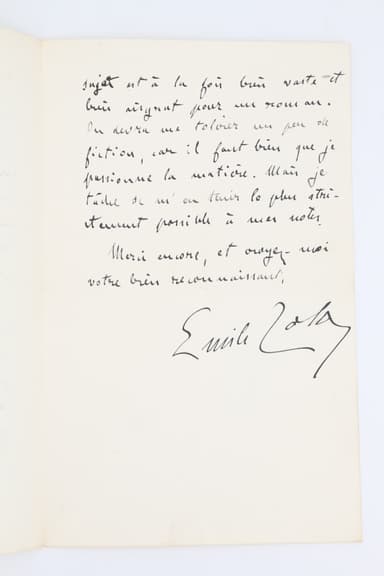 sujet est à la fois bien vaste et
bien ingrat pour un roman.
On devra me tolérer un peu de
fiction, car il faut bien que je
passionne la matière. Mais je
tâche de m'en tenir le plus stric-
tement possible à mes notes.
Merci encore, et croyez-moi
votre bien reconnaissant,
Emile Zola